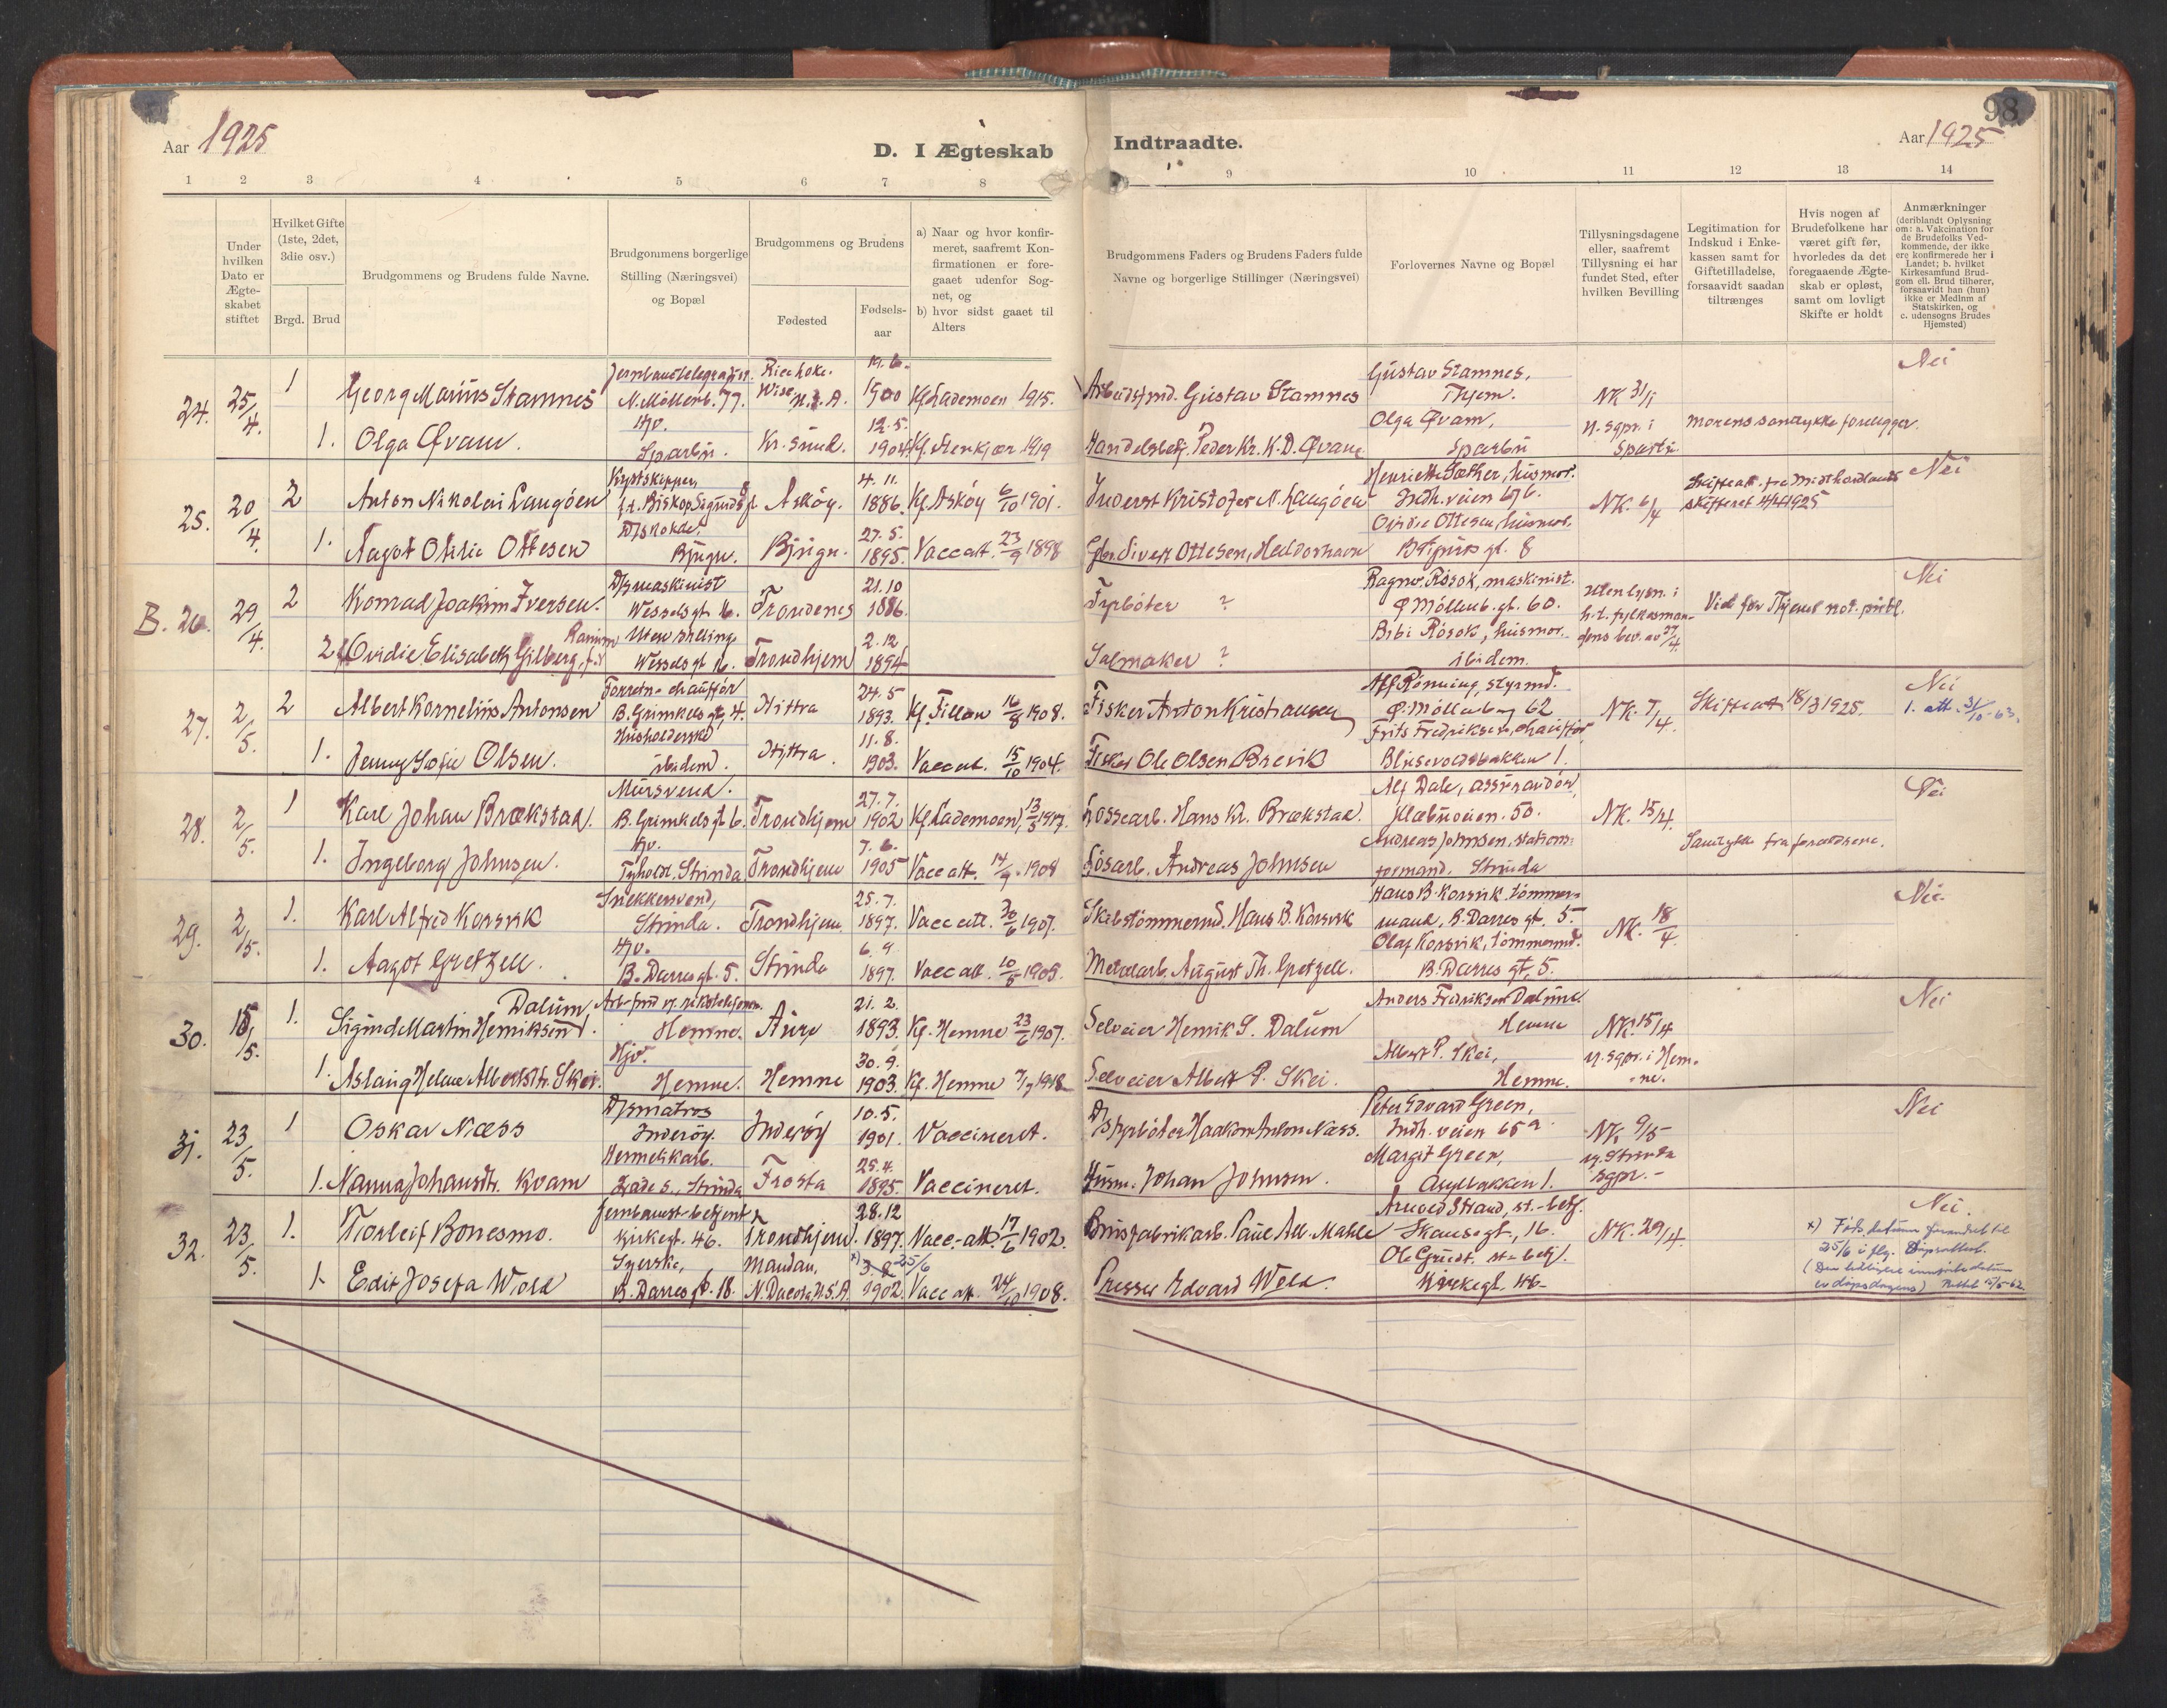 Aar 1925
D. I Ægteskab
1 2 3 4 5 6 7 8
Under hvilken Dato er Ægteskabet stiftet
Hvilket Gifte (1ste, 2det, 3die osv.)
Brgd. Brud
Brudgommens og Brudens fulde Navne.
Brudgommens borgerlige Stilling (Næringsvei) og Bopæl
Brudgommens og Brudens
Fødested
Fødsels-aar
a) Naar og hvor konfir-
meret, saafremt Kon-
firmationen er fore-
gaaet udenfor Sog-
net, og
b) hvor sidst gaaet til
Alters
24. 25/4. 1 Georg Marius Stamnes N. Möllenb. 77. 19.6. 1900 Kf. Lademoen 1915.
1. Olga Qvam. Hjv. Sparbu. 12.5. 1904 Kf. Stenkjær 1919
25. 20/4. 2 Anton Nikolai Langöen Kystskipper, Askøy. 4.11. 1886. Kf. Askøy 6/10 1901.
1. Aagot Otilie Ottesen Bjugn. Bjugn. 27.5. 1895. Vacc att. 23/9 1898
B. 26. 29/4. 2 Konrad Joakim Iversen. D/s maskinist Wesselsgt. 16. Trondenes 21.10 1886.
2 Ovidie Elisabeth Gilberg, Uten stilling Wesselsgt. 16. Trondhjem 2.12 1894
27. 2/5. 2 Albert Kornelius Antonsen B. Grimkels gt. 4. Hittra 24.5 1893. Kf. Fillan 16/8 1908.
1. Jenny Sofie Olsen. Husholderske ibidem. Hittra. 11.8. 1903. Vacc att. 15/10 1904.
28. 2/5. 1 Karl Johan Brækstad. Mursvend. B. Grimkels gt. 6. Trondhjem 27.7. 1902 Kf. Lademoen, 13/5 1917.
1. Ingeborg Johnsen. Hjv. Tyholt, Strinda. Trondhjem 7.6. 1905 Vacc att. 14/9 1908
29. 2/5. 1. Karl Alfred Korsvik Snekkersvend, Strinda. Trondhjem. 25.7. 1897. Vacc att. 30/6 1907.
1. Aagot Gretzell. Hjv. B. Darres gt. 5. Strinda 6.9. 1897. Vacc att. 10/5 1905.
30. 15/5. 1. Sigurd Martin Henriksen Dalum. Hemne. Aure 21.2. 1893. Kf. Hemne 23/6 1907.
1. Aslaug Helene Albertsdtr. Skei. Hjv. Hemne. Hemne 30.9. 1903. Kf. Hemne 1918
31. 23/5. 1 Oskar Næss D/s matros Inderøy. Inderøy 10.5. 1901. Vaccineret.
1. Nanna Johansdtr. Kvam Hermetikarb. Lade s., Strinda Frosta 25.4. 1895. Vaccineret.
32. 23/5. 1. Torleif Bonesmo. Jernbanebetjent Kirkegt. 46. Trondhjem. 28.12 1897. Vacc. att. 17/6 1902.
1. Edit Josefa Wold Syerske, B. Darres gt. 18. Mandan, N. Dacota U.S.A. x) 25/6 1902. Vacc att. 24/10 1908.
98
Indtraadte.
Aar 1925
9 10 11 12 13 14
Brudgommens Faders og Brudens Faders fulde
Navne og borgerlige Stillinger (Næringsvei)
Forlovernes Navne og Bopæl
Tillysningsdagene
eller, saafremt
Tillysning ei har
fundet Sted, efter
hvilken Bevilling
Legitimation for
Indskud i Enke-
kassen samt for
Giftetilladelse,
forsaavidt saadan
tiltrænges
Hvis nogen af
Brudefolkene har
været gift før,
hvorledes da det
foregaaende Ægte-
skab er opløst,
samt om lovligt
Skifte er holdt
Anmærkninger
(deriblandt Oplysning
om: a. Vakcination for
de Brudefolks Ved-
kommende, der ikke
ere konfirmerede her i
Landet; b. hvilket
Kirkesamfund Brud-
gom ell. Brud tilhører,
forsaavidt han (hun)
ikke er Medlnm af
Statskirken, og
c. udensogns Brudes
Hjemsted)
Arbeidsfmd. Gustav Stamnes Gustav Stamnes, Thjem. NK 31/1 Nei
Handelsbetj. Peder Kr. K. D. Qvam Olga Qvam, Sparbu v. sgpr. i Sparbu Morens samtykke foreligger.
Inderst Kristofer N. Langöen Henriette Sæther, husmor. Indh. veien 67 b. NK. 6/4 Nei
Sivert Ottesen, Ovidie Ottesen, husmor,
Fyrböter ? Ragnv. Rösok, maskinist. Ø. Möllenb. gt. 60. Uten lysn. i Nei
Salmaker ? Bibi Rösok, husmor. ibidem.
Fisker Anton Kristiansen Alf Rönning, styrmd. Ø. Möllenberg 62 NK. 7/4. Skifteatt 18/3 1925. Nei 1. att. 31/10-63.
Fisker Ole Olsen Brevik Frits Fredriksen, chauffør,
Lossearb. Hans Kr. Brækstad. Alf Dale, assurandør, Klæbuveien. 50. NK. 15/4. Nei
Løsarb. Andreas Johnsen Andreas Johnsen, stations-formand. Strinda Samtykke fra foreldrene.
Skibstömmermd. Hans B. Korsvik Hans B. Korsvik tömmermand, B. Darres gt. 5. NK. 18/4. Nei
Metalarb. August Th. Gretzell. Olaf Korsvik, tömmermd. B. Darres gt. 5.
Selveier Henrik S. Dalum Anders Fredriksen Dalum Hemne NK. 15/4 Nei
Selveier Albert P. Skei. Albert P. Skei, Hemne. v. sgpr. i Hemne.
D/s fyrböter Haakon Anton Næss. Peter Edvard Green, Indh. veien 65 a. NK 9/5 Nei
Husm. Johan Johnsen. Margit Green, Asylbakken 1. v. Strinda sgpr.
Brusfabrikarb. Paul Alb. Mahle Arnold Strand, st.-betj. Skansegt, 16. NK. 29/4. Nei.
Presser Edvard Wold. Ole Grindt. st-betj. Kirkegt. 46
x) Føds. datum forandret til
25/6 i flg. Dåpsattest.
(Den tidligere innførte datum
er dåpsdagens)